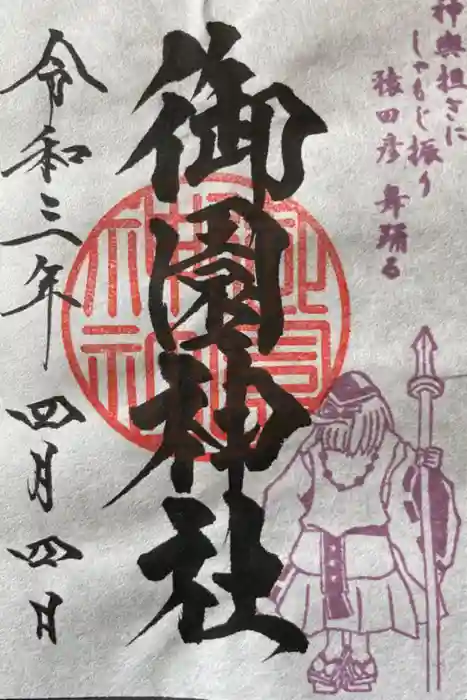 神輿担きに
しゃもじ振り
猿田彦 舞踊る
御園神社
令和三年 四月四日